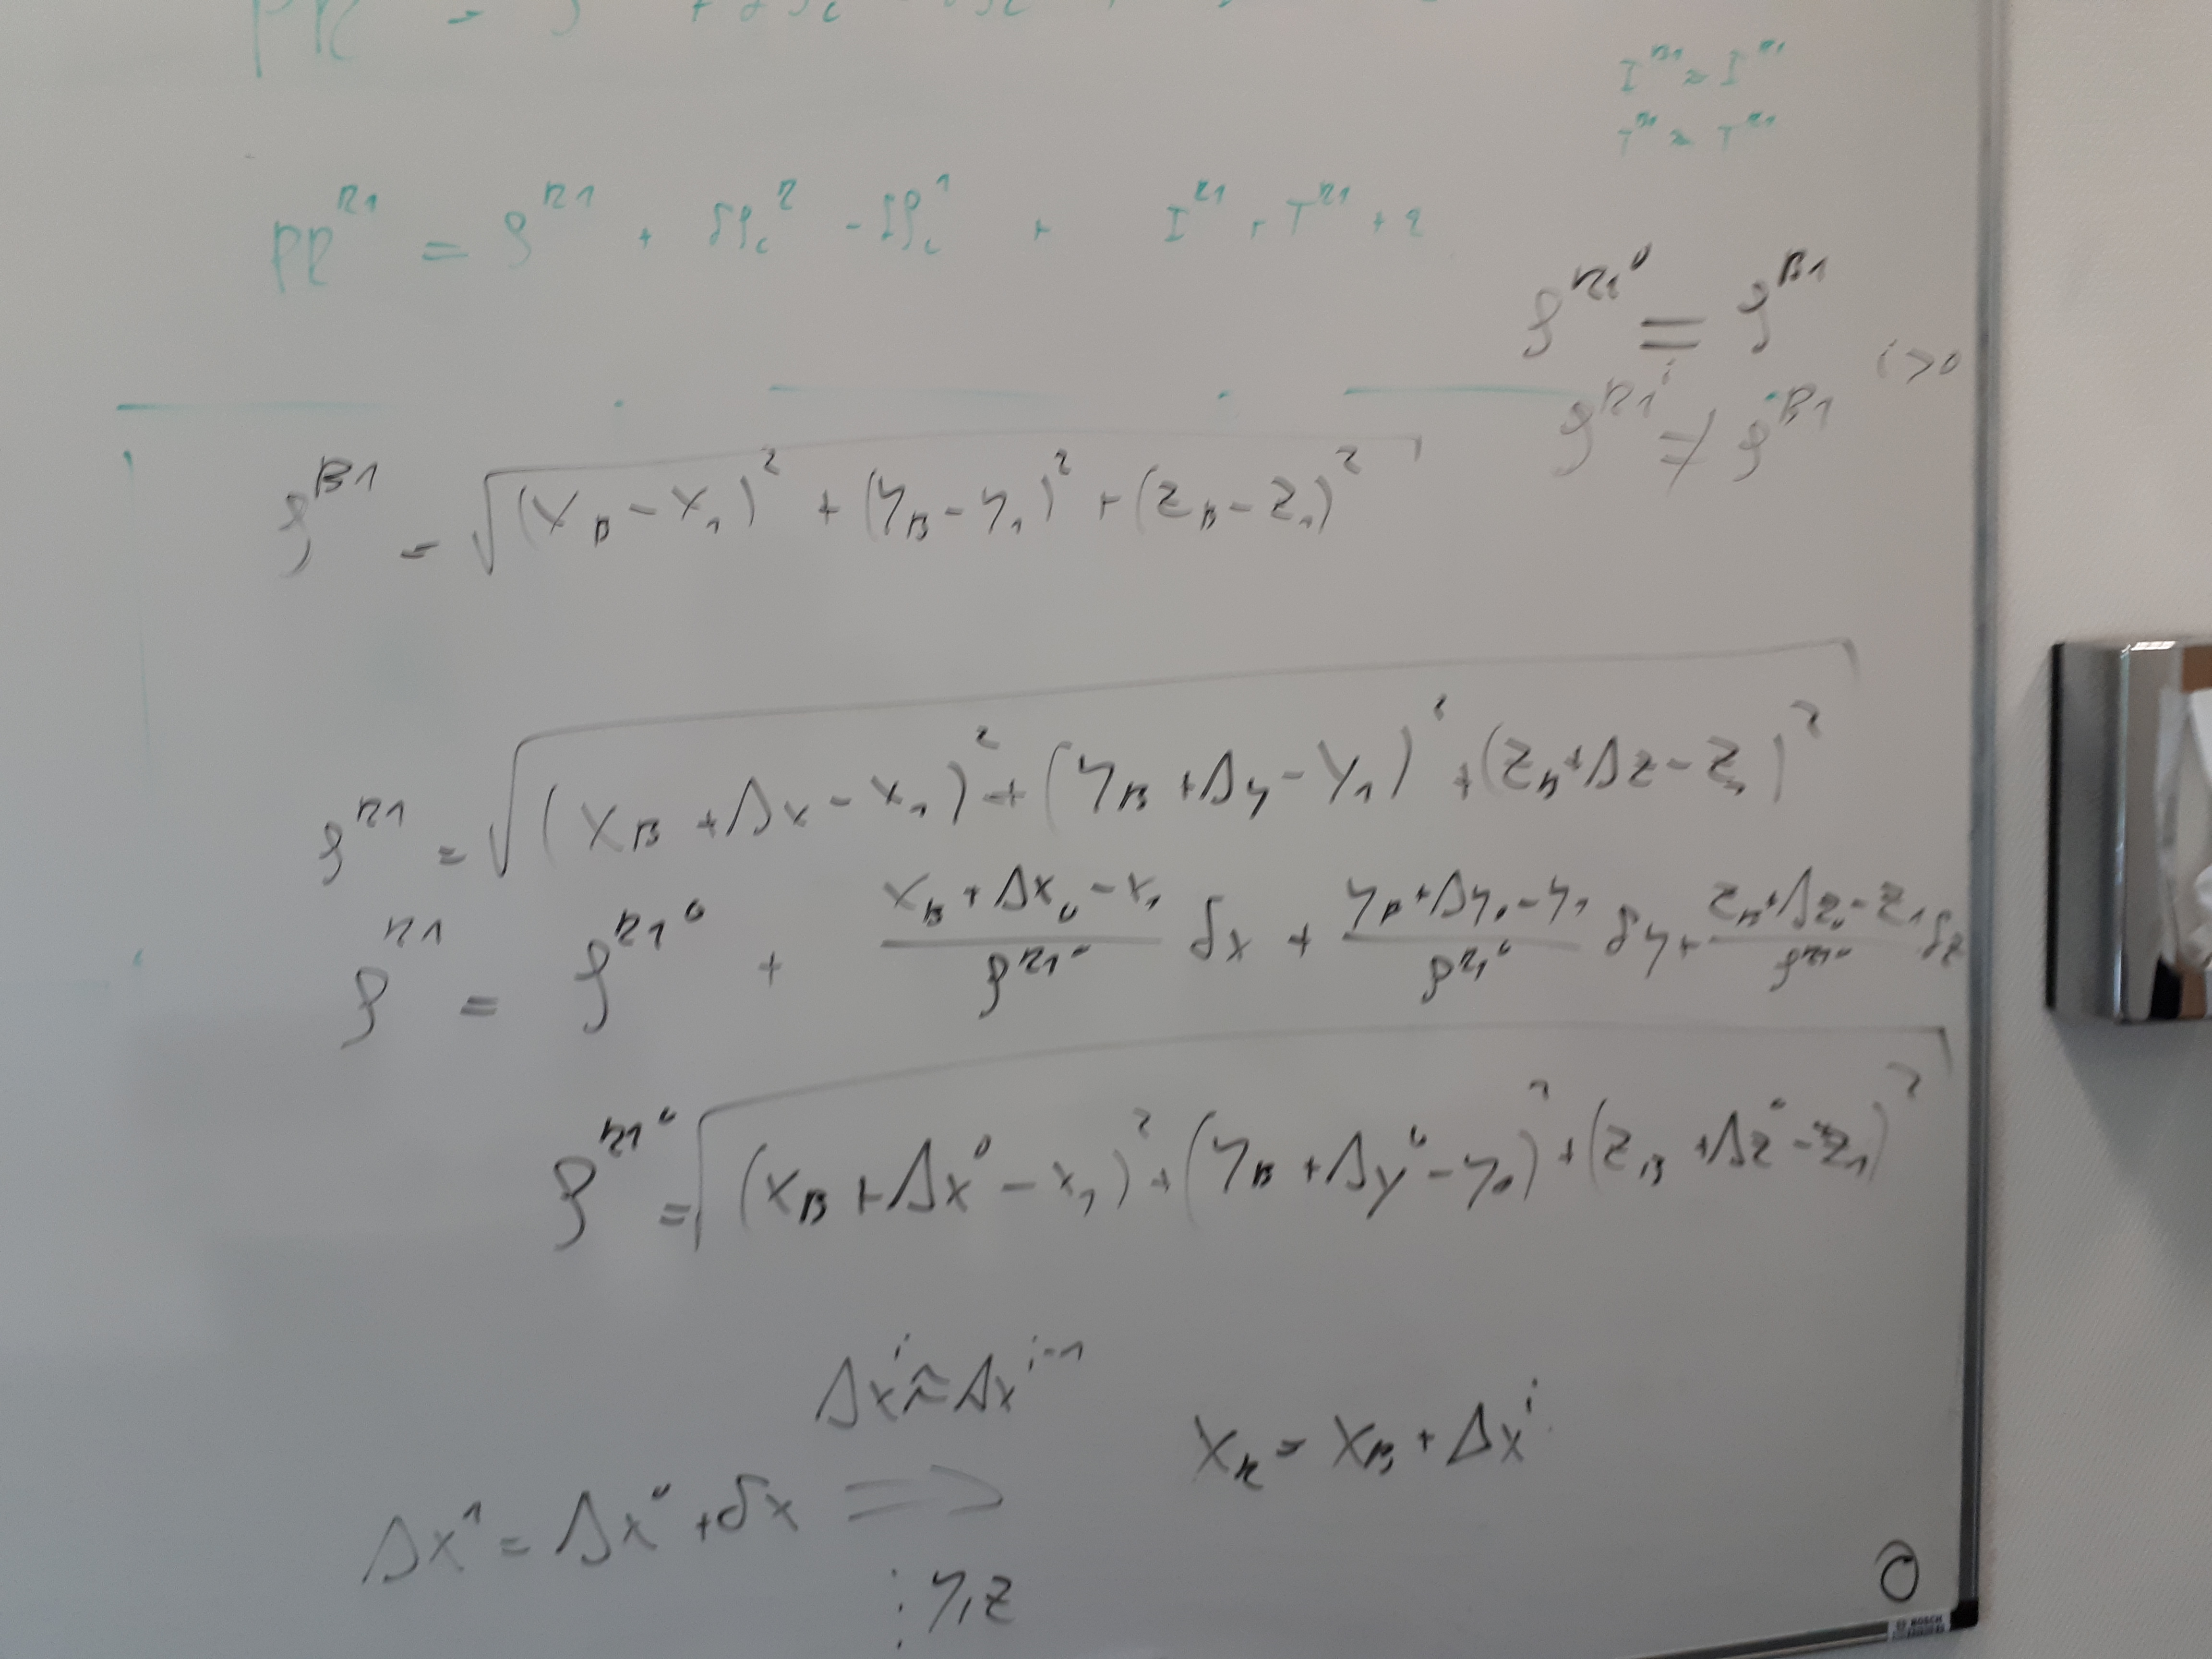 I^{B1} ≈ I^{R1}
T^{B1} ≈ T^{R1}
PR^{R1} = ρ^{R1} + δρ_c^R - δρ_c^1 + I^{R1} + T^{R1} + ε
ρ^{R1^0} = ρ^{B1}
ρ^{R1^i} ≠ ρ^{B1} i>0
ρ^{B1} = √((x_B - x_1)^2 + (y_B - y_1)^2 + (z_B - z_1)^2)
ρ^{R1} = √((x_B + Δx - x_1)^2 + (y_B + Δy - y_1)^2 + (z_B + Δz - z_1)^2)
ρ^{R1} = ρ^{R1^0} + (x_B + Δx_0 - x_1)/ρ^{R1^0} δx + (y_B + Δy_0 - y_1)/ρ^{R1^0} δy + (z_B + Δz_0 - z_1)/ρ^{R1^0} δz
ρ^{R1^0} = √((x_B + Δx^0 - x_1)^2 + (y_B + Δy^0 - y_1)^2 + (z_B + Δz^0 - z_1)^2)
Δx^i ≈ Δx^{i-1}
x_R = x_B + Δx^i
Δx^1 = Δx^0 + δx ⇒
⋮ y, z
BOSCH